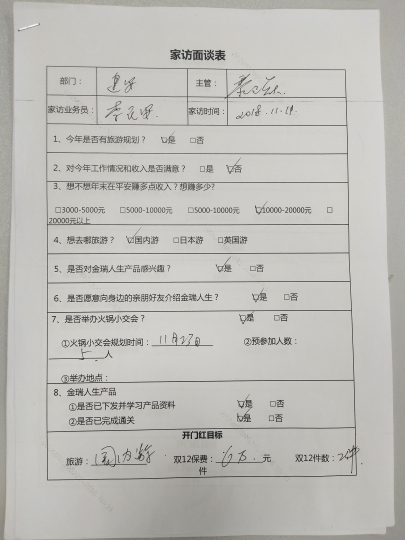 家访面谈表
部门： 主管：
家访业务员： 家访时间： 2018.11.19
1、今年是否有旅游规划？ ☑是 □否
2、对今年工作情况和收入是否满意？ □是 ☑否
3、想不想年末在平安赚多点收入？想赚多少？
□3000-5000元 □5000-10000元 □5000-10000元 ☑10000-20000元 □
20000元以上
4、想去哪旅游？ ☑国内游 □日本游 □英国游
5、是否对金瑞人生产品感兴趣？ ☑是 □否
6、是否愿意向身边的亲朋好友介绍金瑞人生？ ☑是 □否
7、是否举办火锅小交会？ ☑是 □否
①火锅小交会规划时间： 11月27日 ②预参加人数：
5 人
③举办地点：
8、金瑞人生产品
①是否已下发并学习产品资料 ☑是 □否
②是否已完成通关 ☑是 □否
开门红目标
旅游： 国内游 双12保费： 6万 元 双12件数： 2件
件